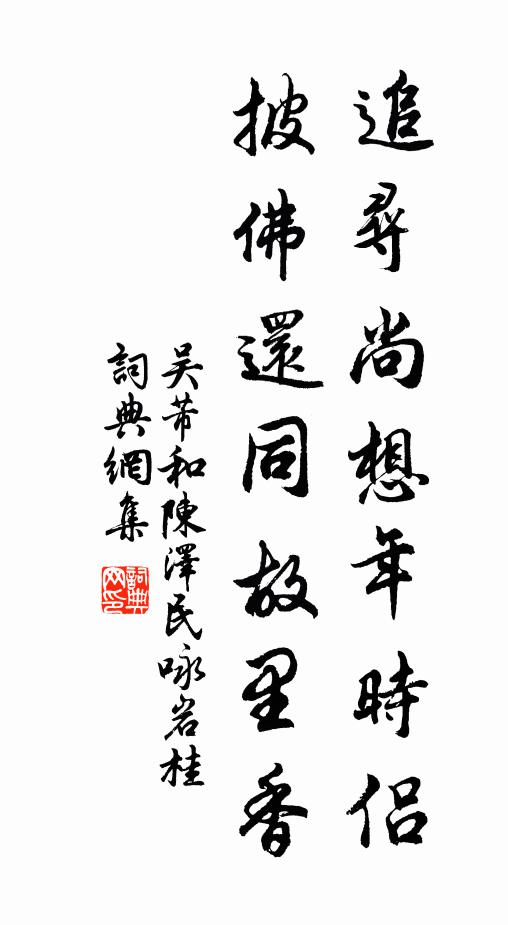 追尋尚想年時侶
披佛還同故里香
吴芾和陳澤民咏岩桂
詞典網集
詞典網印